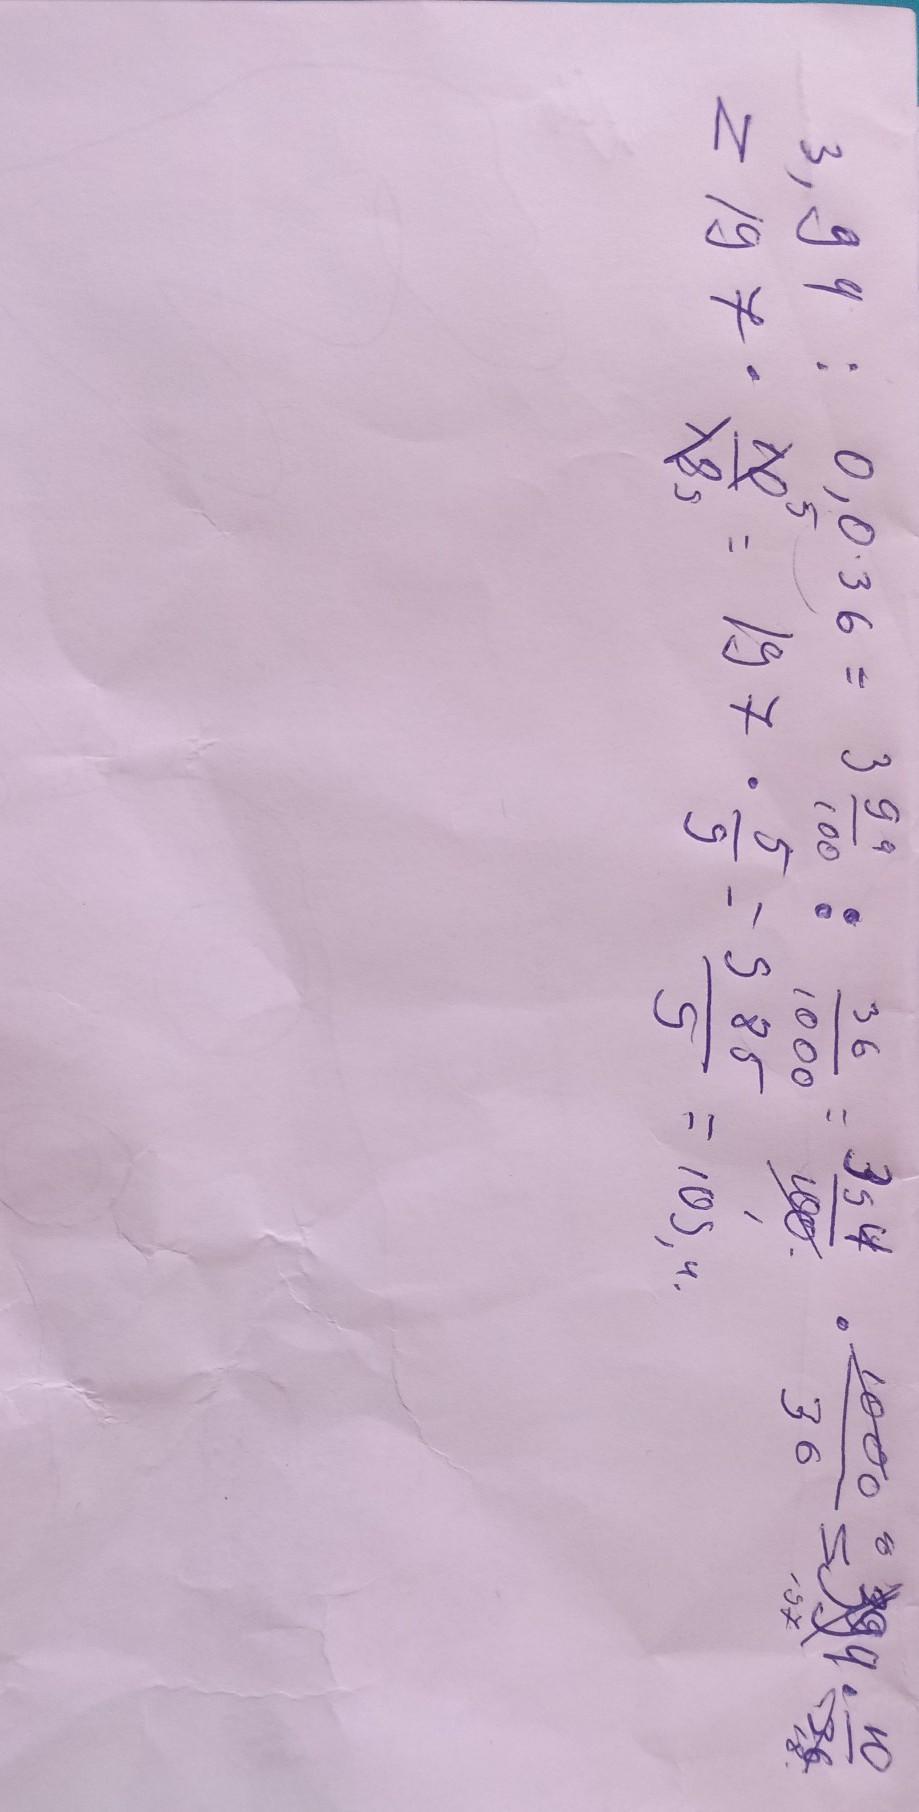 3,94 : 0,036 = 3 94/100 : 36/1000 = 394/100 · 1000/36 = 394 197 · 10/36 18
= 197 · 10 5/18 9 = 197 · 5/9 = 985/9 = 109,4.